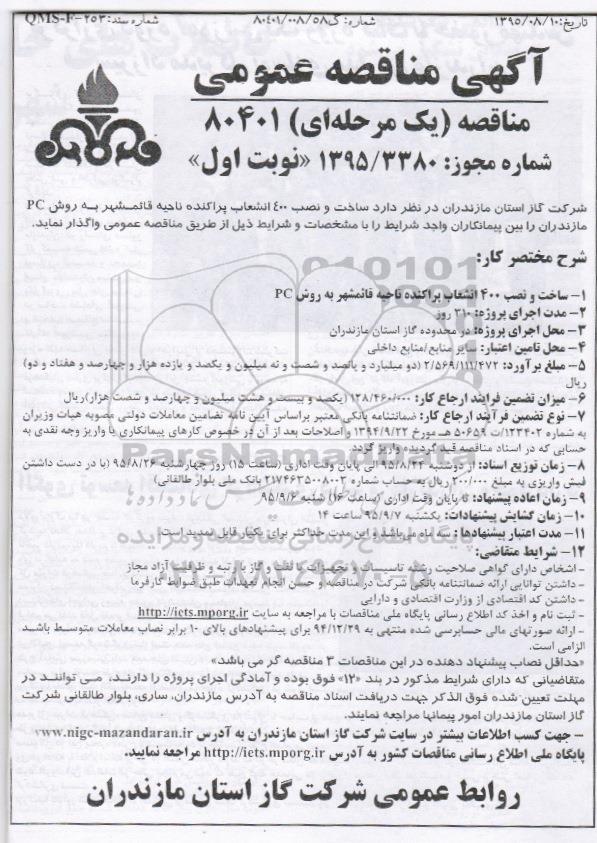 تاریخ: ۱۳۹۵/۰۸/۱۰ شماره: گ۸۰۴۰۱/۰۰۸/۵۸ شماره سند: QMS-F-۲۵۳
آگهی مناقصه عمومی
مناقصه (یک مرحله‌ای) ۸۰۴۰۱
شماره مجوز: ۱۳۹۵/۳۳۸۰ «نوبت اول»
شرکت گاز استان مازندران در نظر دارد ساخت و نصب ۴۰۰ انشعاب پراکنده ناحیه قائمشهر به روش PC
مازندران را بین پیمانکاران واجد شرایط را با مشخصات و شرایط ذیل از طریق مناقصه عمومی واگذار نماید.
شرح مختصر کار:
۱- ساخت و نصب ۴۰۰ انشعاب پراکنده ناحیه قائمشهر به روش PC
۲- مدت اجرای پروژه: ۳۱۰ روز
۳- محل اجرای پروژه: در محدوده گاز استان مازندران
۴- محل تامین اعتبار: سایر منابع/منابع داخلی
۵- مبلغ برآورد: ۲/۵۶۹/۱۱۱/۴۷۲ (دو میلیارد و پانصد و شصت و نه میلیون و یکصد و یازده هزار و چهارصد و هفتاد و دو)
ریال
۶- میزان تضمین فرآیند ارجاع کار: ۱۲۸/۴۶۰/۰۰۰ (یکصد و بیست و هشت میلیون و چهارصد و شصت هزار)ریال
۷- نوع تضمین فرآیند ارجاع کار: ضمانتنامه بانکی معتبر براساس آیین نامه تضامین معاملات دولتی مصوبه هیات وزیران
به شماره ۱۲۳۴۰۲/ت ۵۰۶۵۹ هـ مورخ ۱۳۹۴/۹/۲۲ و اصلاحات بعد از آن در خصوص کارهای پیمانکاری یا واریز وجه نقدی به
حسابی که در اسناد مناقصه قید گردیده واریز گردد.
۸- زمان توزیع اسناد: از دوشنبه ۹۵/۸/۲۴ الی پایان وقت اداری (ساعت ۱۵) روز چهارشنبه ۹۵/۸/۲۶ (با در دست داشتن
فیش واریزی به مبلغ ۲۰۰/۰۰۰ ریال به حساب شماره ۲۱۷۴۶۳۵۰۰۸۰۰۲ بانک ملی بلوار طالقانی)
۹- زمان اعاده پیشنهاد: تا پایان وقت اداری (ساعت ۱۶) شنبه ۹۵/۹/۶
۱۰- زمان گشایش پیشنهادات: یکشنبه ۹۵/۹/۷ ساعت ۱۴
۱۱- مدت اعتبار پیشنهادها: سه ماه می‌باشد و این مدت حداکثر برای یکبار قابل تمدید است.
۱۲- شرایط متقاضی:
- اشخاص دارای گواهی صلاحیت رشته تاسیسات و تجهیزات یا نفت و گاز با رتبه و ظرفیت آزاد مجاز
- داشتن توانایی ارائه ضمانتنامه بانکی شرکت در مناقصه و حسن انجام تعهدات طبق ضوابط کارفرما
- داشتن کد اقتصادی از وزارت اقتصادی و دارایی
- ثبت نام و اخذ کد اطلاع رسانی پایگاه ملی مناقصات با مراجعه به سایت http://iets.mporg.ir
- ارائه صورتهای مالی حسابرسی شده منتهی به ۹۴/۱۲/۲۹ برای پیشنهادهای بالای ۱۰ برابر نصاب معاملات متوسط باشد
الزامی است.
«حداقل نصاب پیشنهاد دهنده در این مناقصات ۳ مناقصه گر می باشد»
متقاضیانی که دارای شرایط مذکور در بند «۱۲» فوق بوده و آمادگی اجرای پروژه را دارند، می توانند در
مهلت تعیین شده فوق الذکر جهت دریافت اسناد مناقصه به آدرس مازندران، ساری، بلوار طالقانی شرکت
گاز استان مازندران امور پیمانها مراجعه نمایند.
- جهت کسب اطلاعات بیشتر در سایت شرکت گاز استان مازندران به آدرس www.nigc-mazandaran.ir
پایگاه ملی اطلاع رسانی مناقصات کشور به آدرس http://iets.mporg.ir مراجعه نمایید.
روابط عمومی شرکت گاز استان مازندران